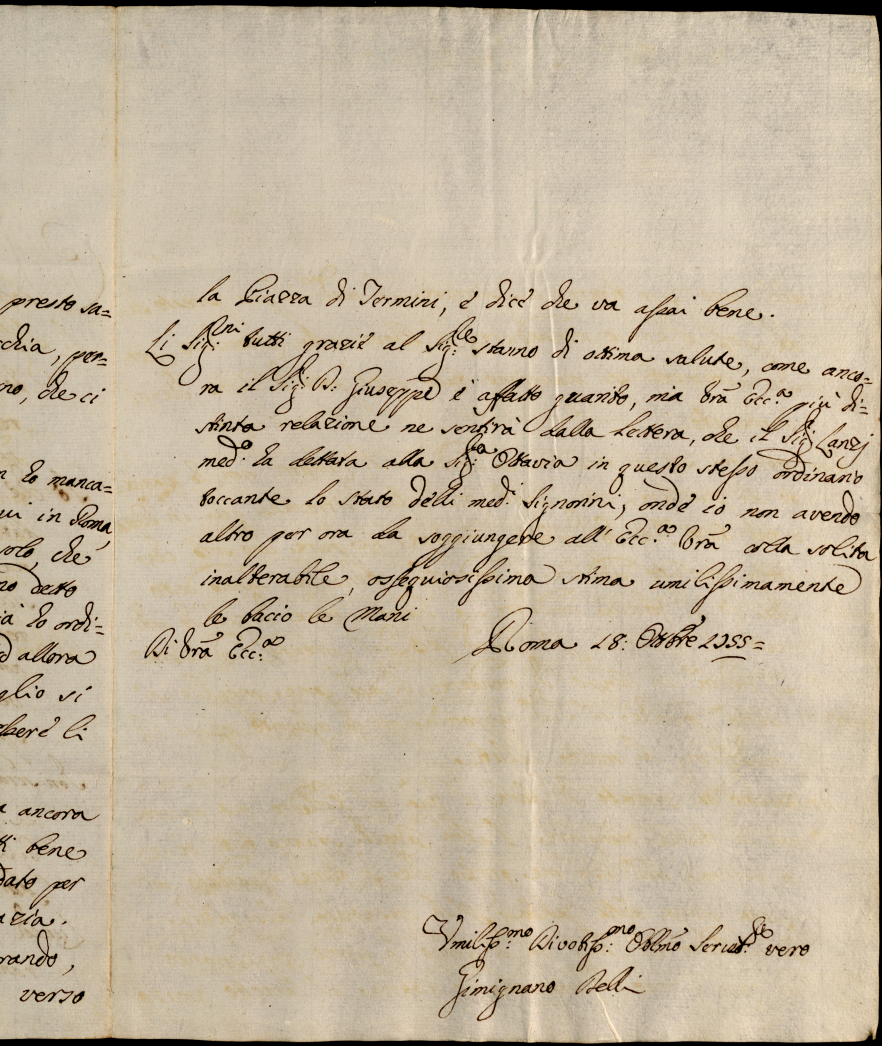 presto sa=
chia, per=
no, che ci
n to manca=
ui in Roma,
solo, che
no detto
ià to ordi=
d allora
glio si
sberè li
a ancora
ti bene
dato per
azia.
rando,
verso
la Piazza di Termini, è dicè che va assai bene.
Li Sig:ⁿⁱ tutti graziè al Sig:ʳᵉ stanno di ottima salute, come anco=
ra il Sig: D: Giuseppè è affatto guarito, mà Vrã Ecc:ᵃ più di=
stinta relazione ne sentirà dalla lettera, che il Sig: Lanzj
med:º tà dettata alla Sig:ʳᵃ Ottavia in questo stesso ordinario
toccante lo stato delli med:ⁱ Signorini, ondè io non avendo
altro per ora da soggiungere all' Ecc:ᵃ Vrã colla solita
inalterabile, ossequiosissima stima umilissimamente
le bacio le Mani
Di Vrã Ecc:ᵃ
Roma 18: Ottbrè 1755=
Vmiliss:ᵐᵒ Divotiss:ᵐᵒ Obblmõ Servit:ʳᵉ vero
Gimignano Belli